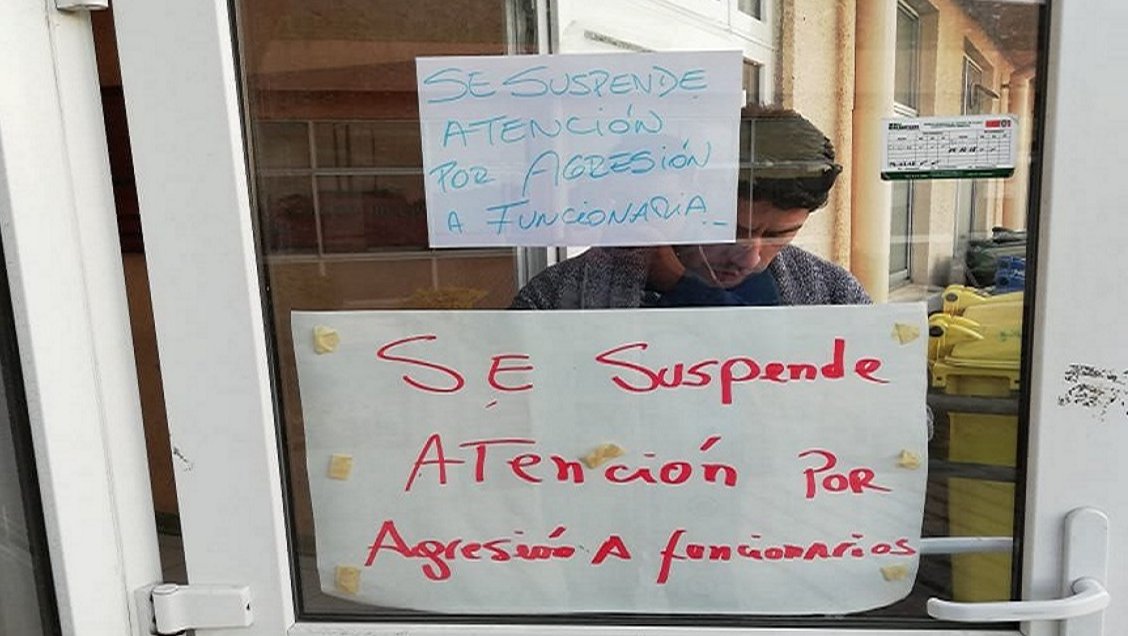 SE SUSPENDE
ATENCIÓN
POR AGRESIÓN
A FUNCIONARIA._
SE Suspende
ATención POR
Agresión A funcionarios